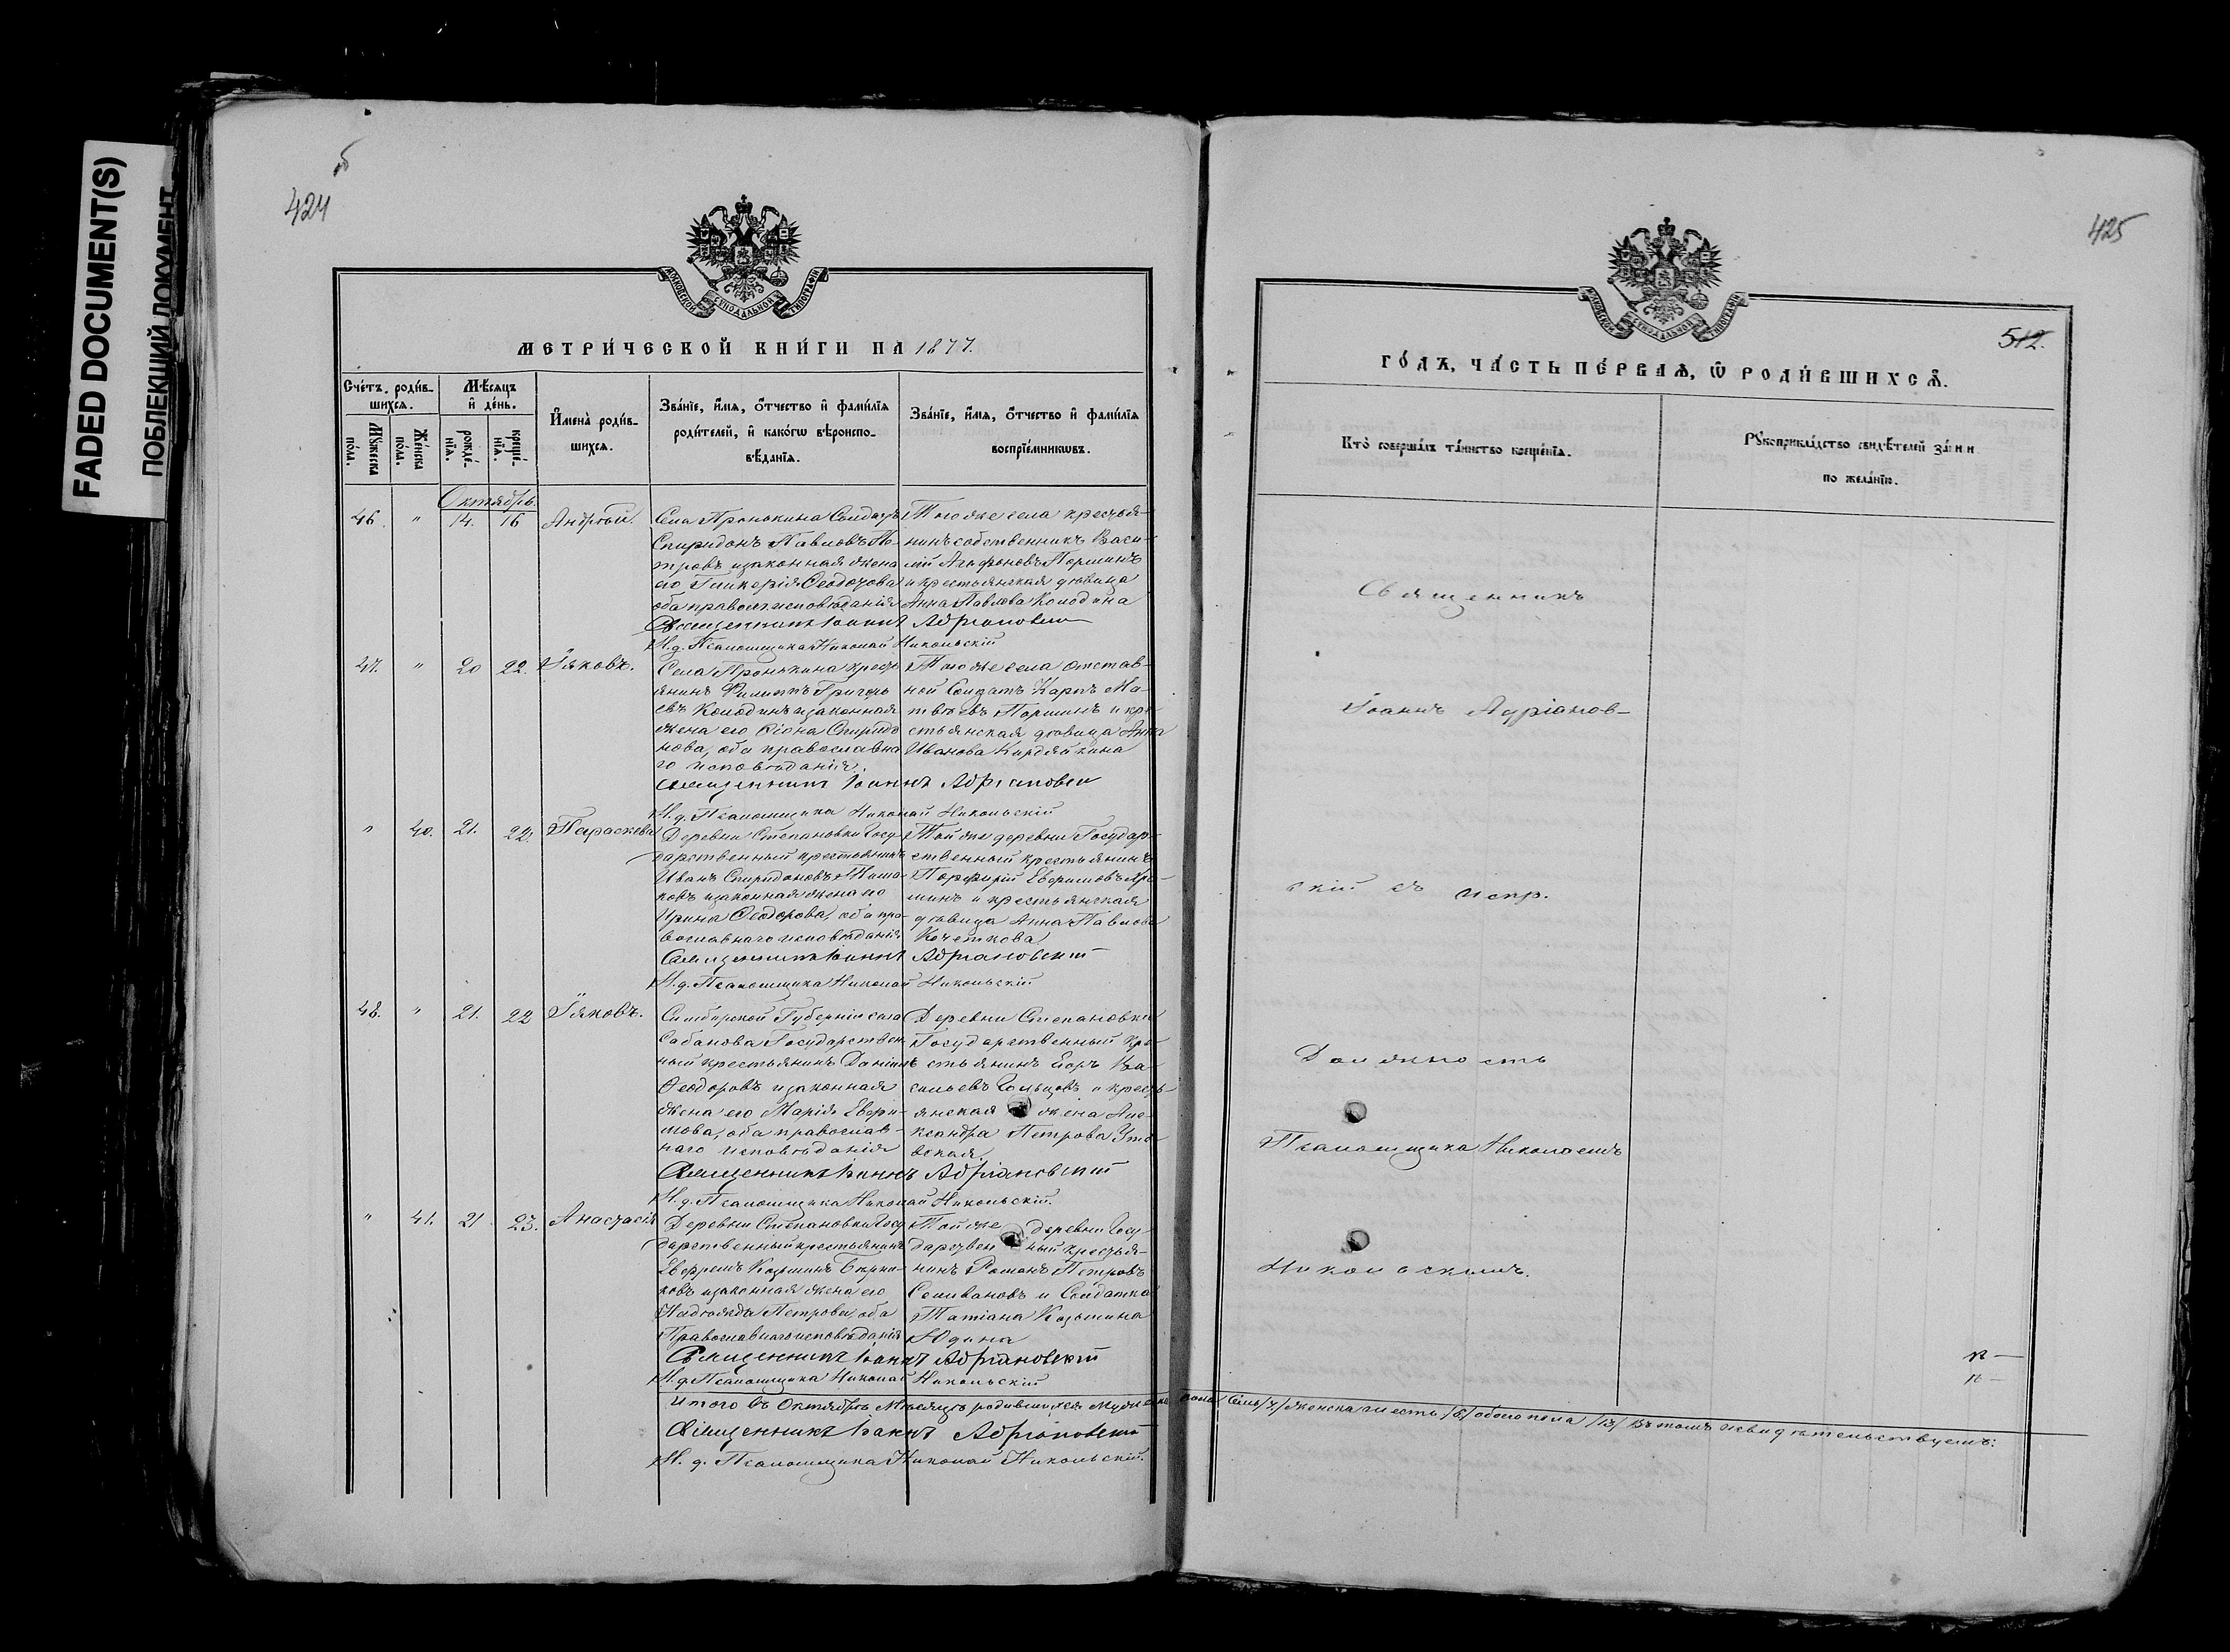 FADED DOCUMENT(S)
ПОБЛЕКШИЙ ДОКУМЕНТ
об
424
МОСКОВСКОЙ СѴНОДАЛЬНОЙ ТИПОГРАФІИ
МЕТРИ́ЧЕСКОЙ КНИ́ГИ НА 1877.
Сче́тъ роди́в-
шихся.
Мѣ́сяцъ
и҆ де́нь.
Мꙋ́жеска
по́ла.
Же́нска
по́ла.
рожде́-
нїѧ.
креще́-
нїѧ.
И҆мена̀ роди́в-
шихсѧ.
Зва́нїе, и҆́мѧ, ѻ҆́тчество и҆ фами́лїѧ
роди́телей, и҆ како́гѡ вѣроиспо-
вѣ́данїѧ.
Зва́нїе, и҆́мѧ, ѻ҆́тчество и҆ фами́лїѧ
воспрїе́мникѡвъ.
Октябрь.
46. " 14. 16 Андрей. Села Пронькина Солдатъ
Спиридонъ Павловъ Пе-
тровъ и законная жена
его Гликерія Ѳеодорова
оба православ. исповѣданія
Тогоже села крестья-
нинъ собственникъ Васи-
лій Агафоновъ Поршинъ
и крестьянская дѣвица
Анна Павлова Колодина
Священникъ Іоаннъ Адріановскій
И. д. Псаломщика Николай Никольскій
47. " 20 22. Іяковъ. Села Пронькина кресть
янинъ Филиппъ Григорь
евъ Колодинъ и законная
жена его Ѳіона Спиридо
нова, оба православна
го исповѣданія.
Тогоже села отстав-
ной Солдатъ Карпъ Ма-
твѣевъ Поршинъ и кре-
стьянская дѣвица Анна
Иванова Кирдяйкина
Священникъ Іоаннъ Адріановскій
И. д. Псаломщика Николай Никольскій
" 40. 21. 22. Параскева Деревни Степановки Госу-
дарственный крестьянинъ
Иванъ Спиридоновъ
ковъ и законная жена его
Ирина Ѳеодорова, оба пра-
вославнаго исповѣданія
Тойже деревни Государ-
ственный крестьянинъ
Порфирій Евѳимовъ
шинъ и крестьянская
дѣвица Анна Павлова
Кочеткова
Священникъ Іоаннъ Адріановскій
И. д. Псаломщика Николай Никольскій
48. " 21. 22 Іяковъ. Симбирской Губерніи села
Сабанова Государствен
ный крестьянинъ Даніилъ
Ѳеодоровъ и законная
жена его Марія Евѳи-
мова, оба православ-
наго исповѣданія
Деревни Степановки
Государственный кре-
стьянинъ Егоръ Ва-
сильевъ Гольцовъ и кресть-
янская жена Але-
ксандра Петрова
вская.
Священникъ Іоаннъ Адріановскій
И. д. Псаломщика Николай Никольскій.
" 41. 21. 23. Анастасія Деревни Степановки Госу
дарственный крестьянинъ
Евфремъ Козьминъ
ковъ и законная жена его
Надежда Петрова, оба
Православнаго исповѣданія
Тойже деревни Госу-
дарствен ный крестья-
нинъ Романъ Петровъ
Селивановъ и Солдатка
Татіана Козьмина
Юдина
Священникъ Іоаннъ Адріановскій
И. д. Псаломщика Николай Никольскій
Итого въ Октябрѣ Мѣсяцѣ родившихся мужеска пола семь /7/ женска шесть /6/ обоего пола /13/ Въ томъ и свидѣтельствуемъ:
Священникъ Іоаннъ Адріановскій
И. д. Псаломщика Николай Никольскій.
425
МОСКОВСКОЙ СѴНОДАЛЬНОЙ ТИПОГРАФІИ
512.
ГО́ДЪ, ЧА́СТЬ ПЕ́РВАѦ, Ѡ҆ РОДИ́ВШИХСѦ.
Кто̀ соверша́лъ та́инство креще́нїѧ.
Рꙋкоприкла́дство свидѣ́телей за́писи
по жела́нїю.
Священникъ
Іоаннъ Адріанов-
скій съ испр.
Должность
Псаломщика Николаемъ
Никольскимъ.